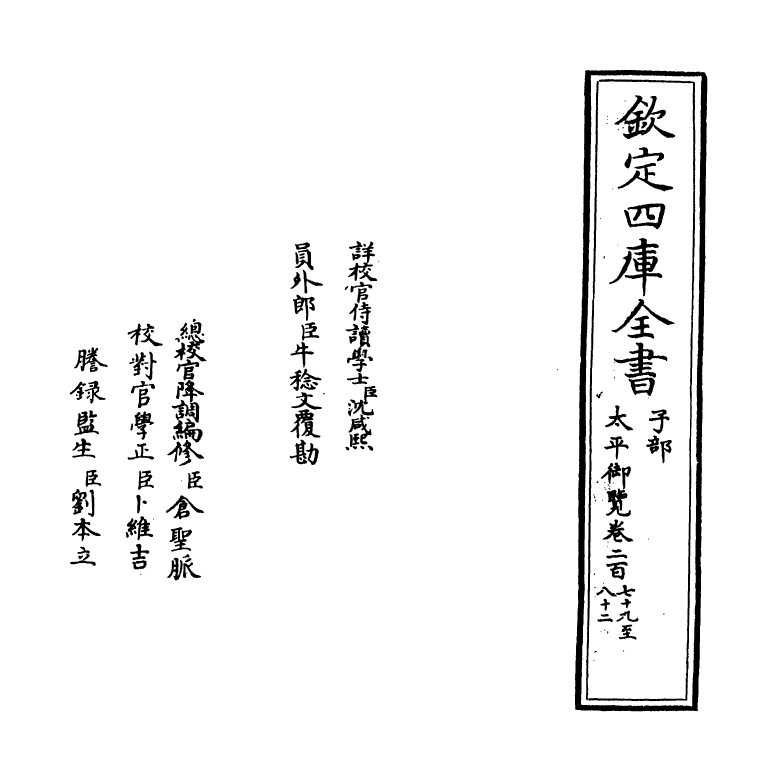 欽定四庫全書
子部
太平御覽卷二百
七十九至
八十二
詳校官侍讀學士臣沈咸熙
員外郎臣牛稔文覆勘
總校官降調編修臣倉聖脈
校對官學正臣卜維吉
謄錄監生臣劉本立